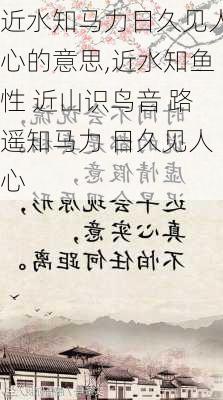 近水知马力日久见人
心的意思,近水知鱼
性 近山识鸟音 路
遥知马力 日久见人
心
时间不会说谎,
虚情假意,
迟早会现原形,
真心实意,
不怕任何距离。